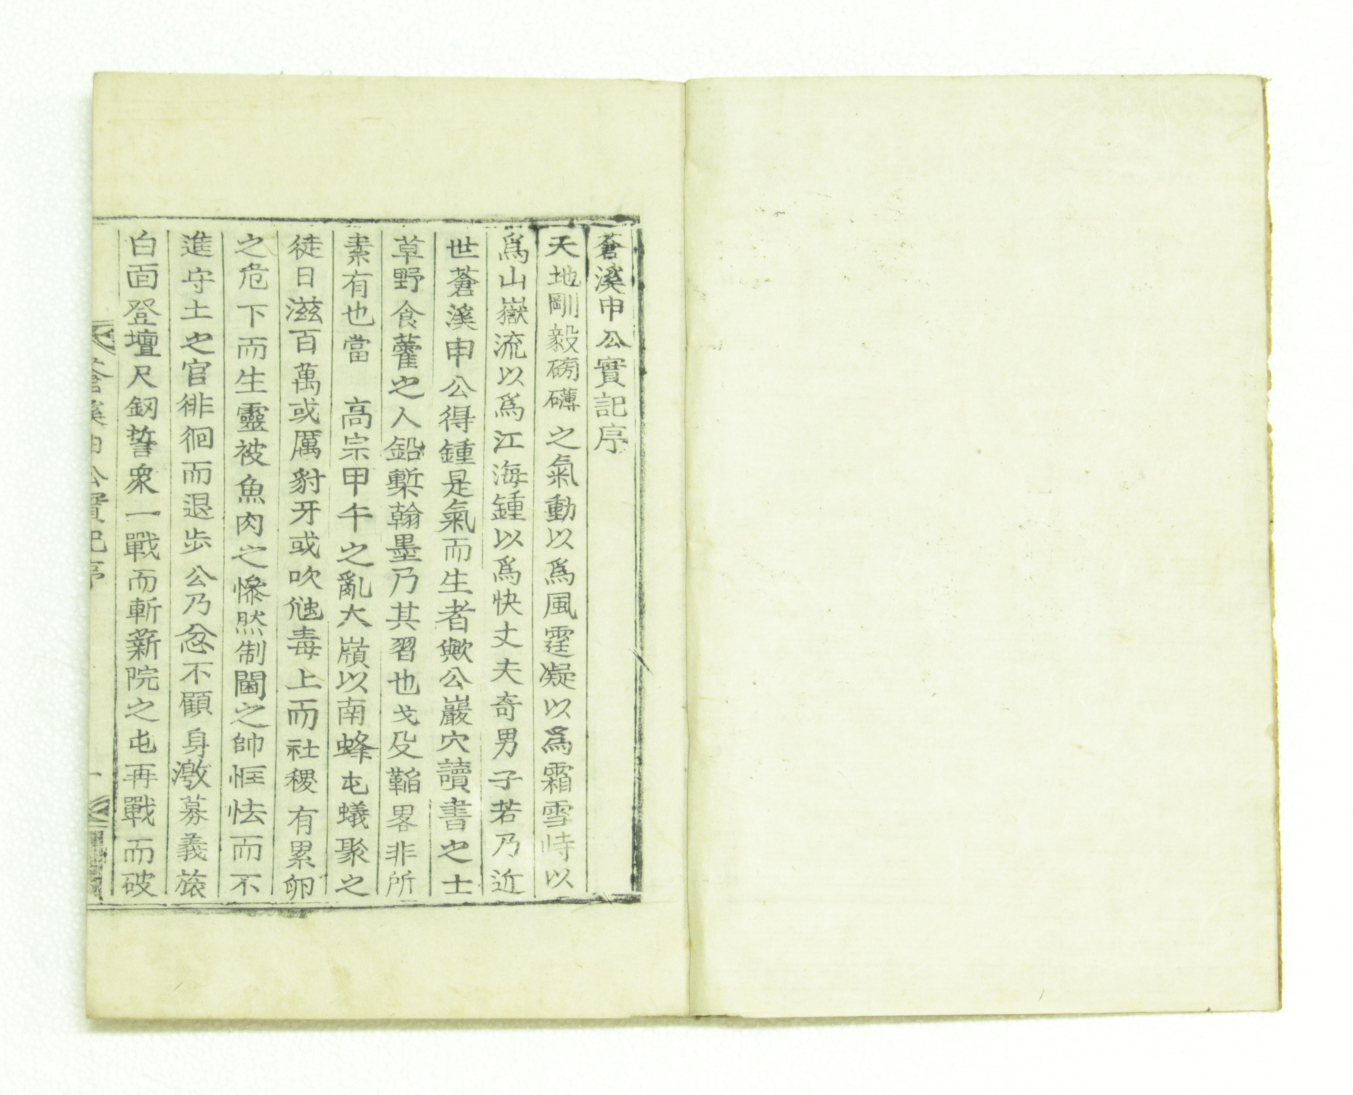 蒼溪申公實記序
天地剛毅磅礴之氣動以爲風霆凝以爲霜雪峙以
爲山嶽流以爲江海鍾以爲快丈夫奇男子若乃近
世蒼溪申公得鍾是氣而生者歟公巖穴讀書之士
草野食藿之人鉛槧翰墨乃其習也戈殳鞱畧非所
素有也當 高宗甲午之亂大嶺以南蜂屯蟻聚之
徒日滋百萬或厲豺牙或吹虺毒上而社稷有累卵
之危下而生靈被魚肉之慘然制閫之帥恇怯而不
進守土之官徘徊而退步公乃忿不顧身激募義旅
白面登壇尺釰誓衆一戰而斬薪院之屯再戰而破
蒼溪申公實記序 一